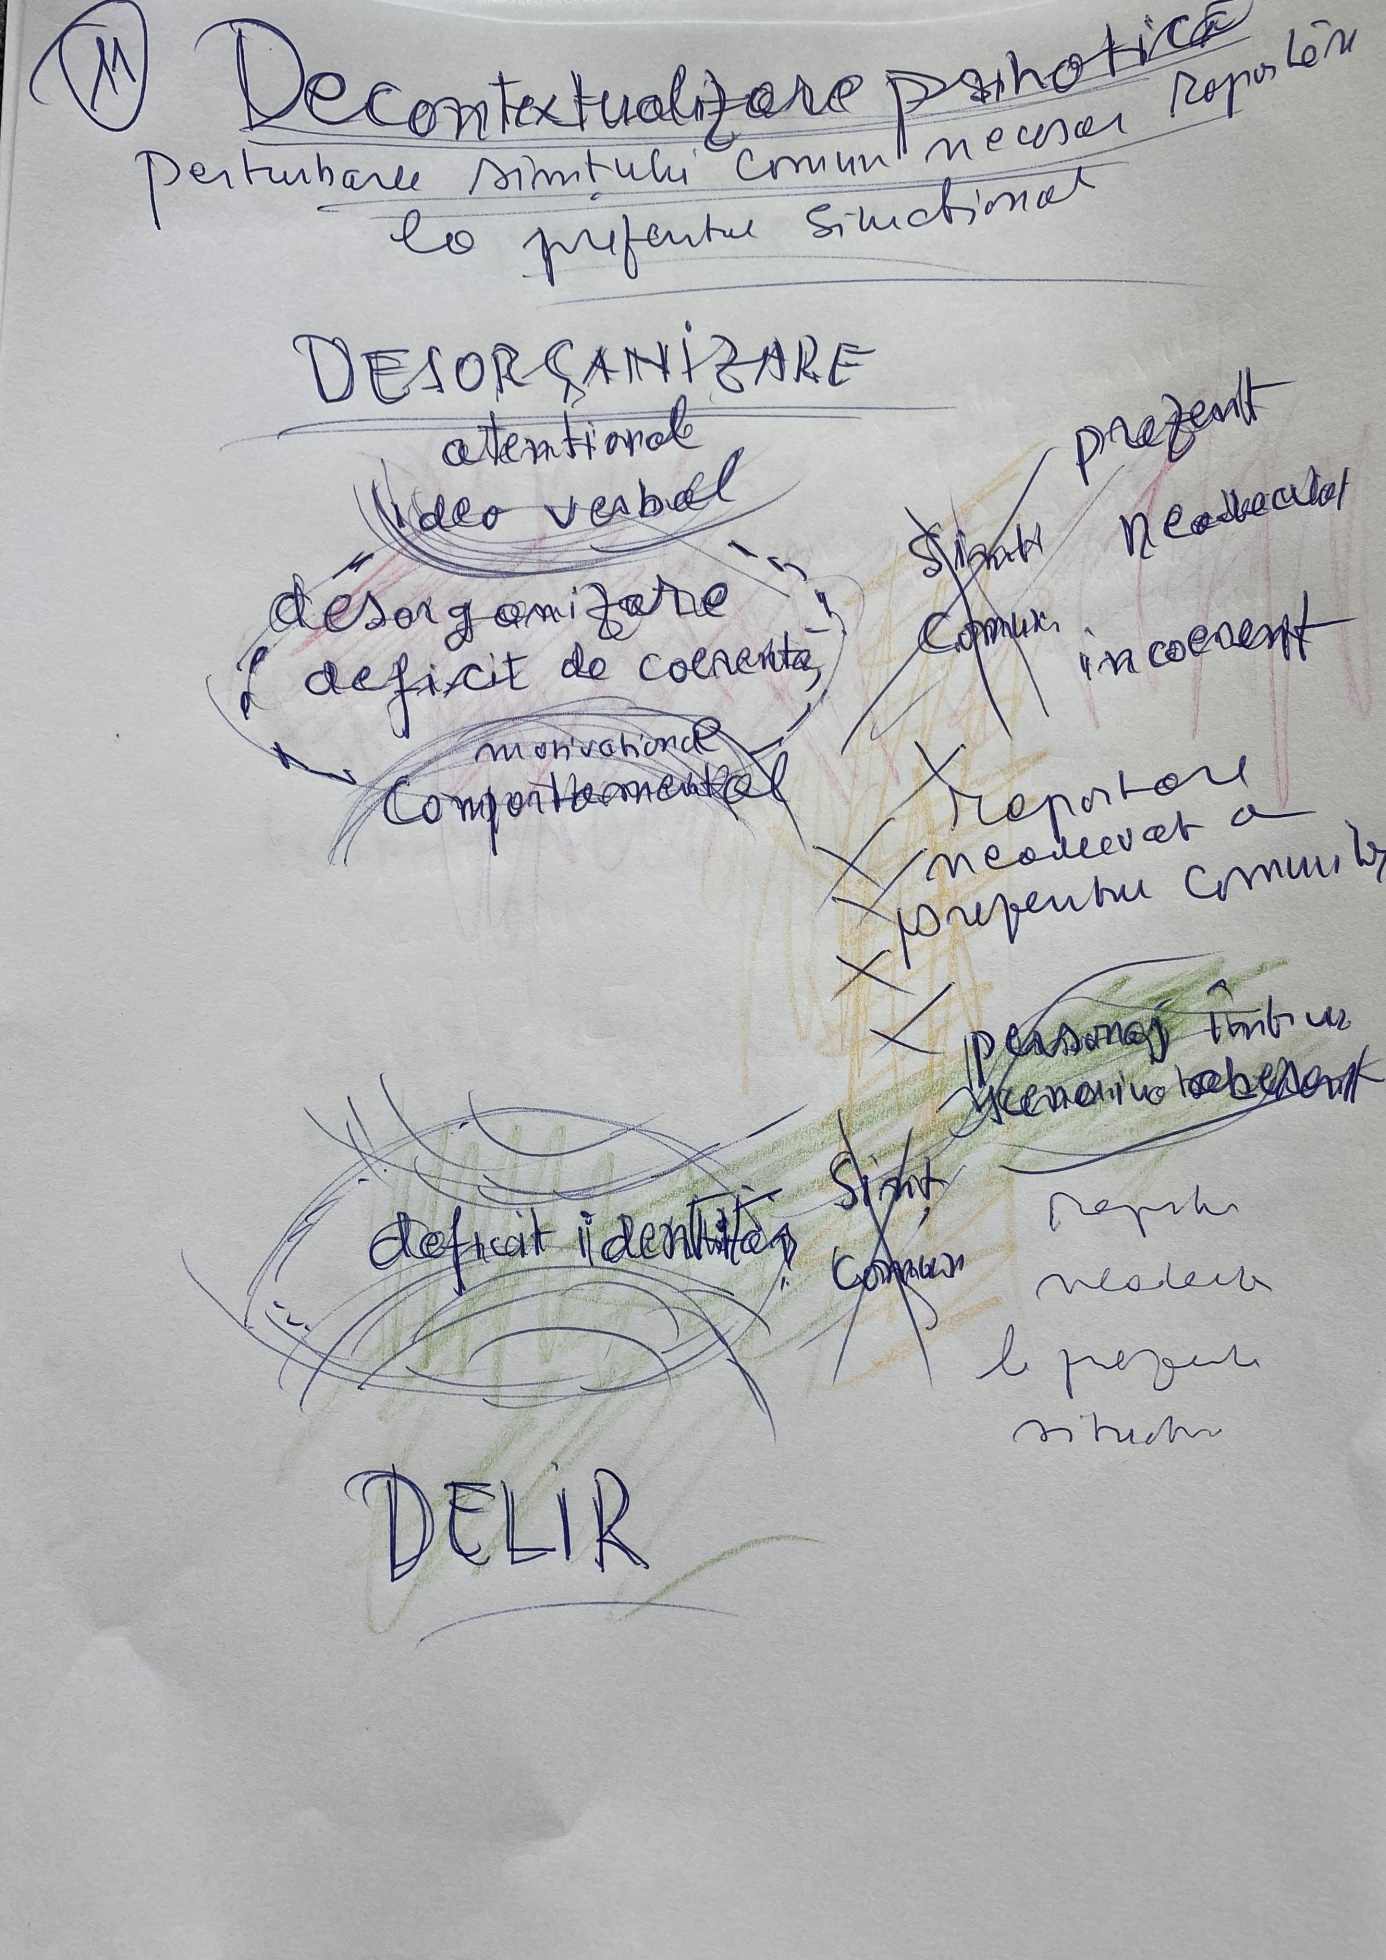 11
Decontextualizare psihotică
perturbarea simțului comun necesar raportării
la prezentul situațional
DESORGANIZARE
atențional
ideo verbal
desorganizare
deficit de coerență
motivațional
comportamental
prezent
neadecvat
incoerent
Simț
Comun
raportare
neadecvat a
prezentul comunităț
personaj într un
scenariu aberant
deficit identitar
Simț
Comun
neadecv
la prezent
situațio
DELIR